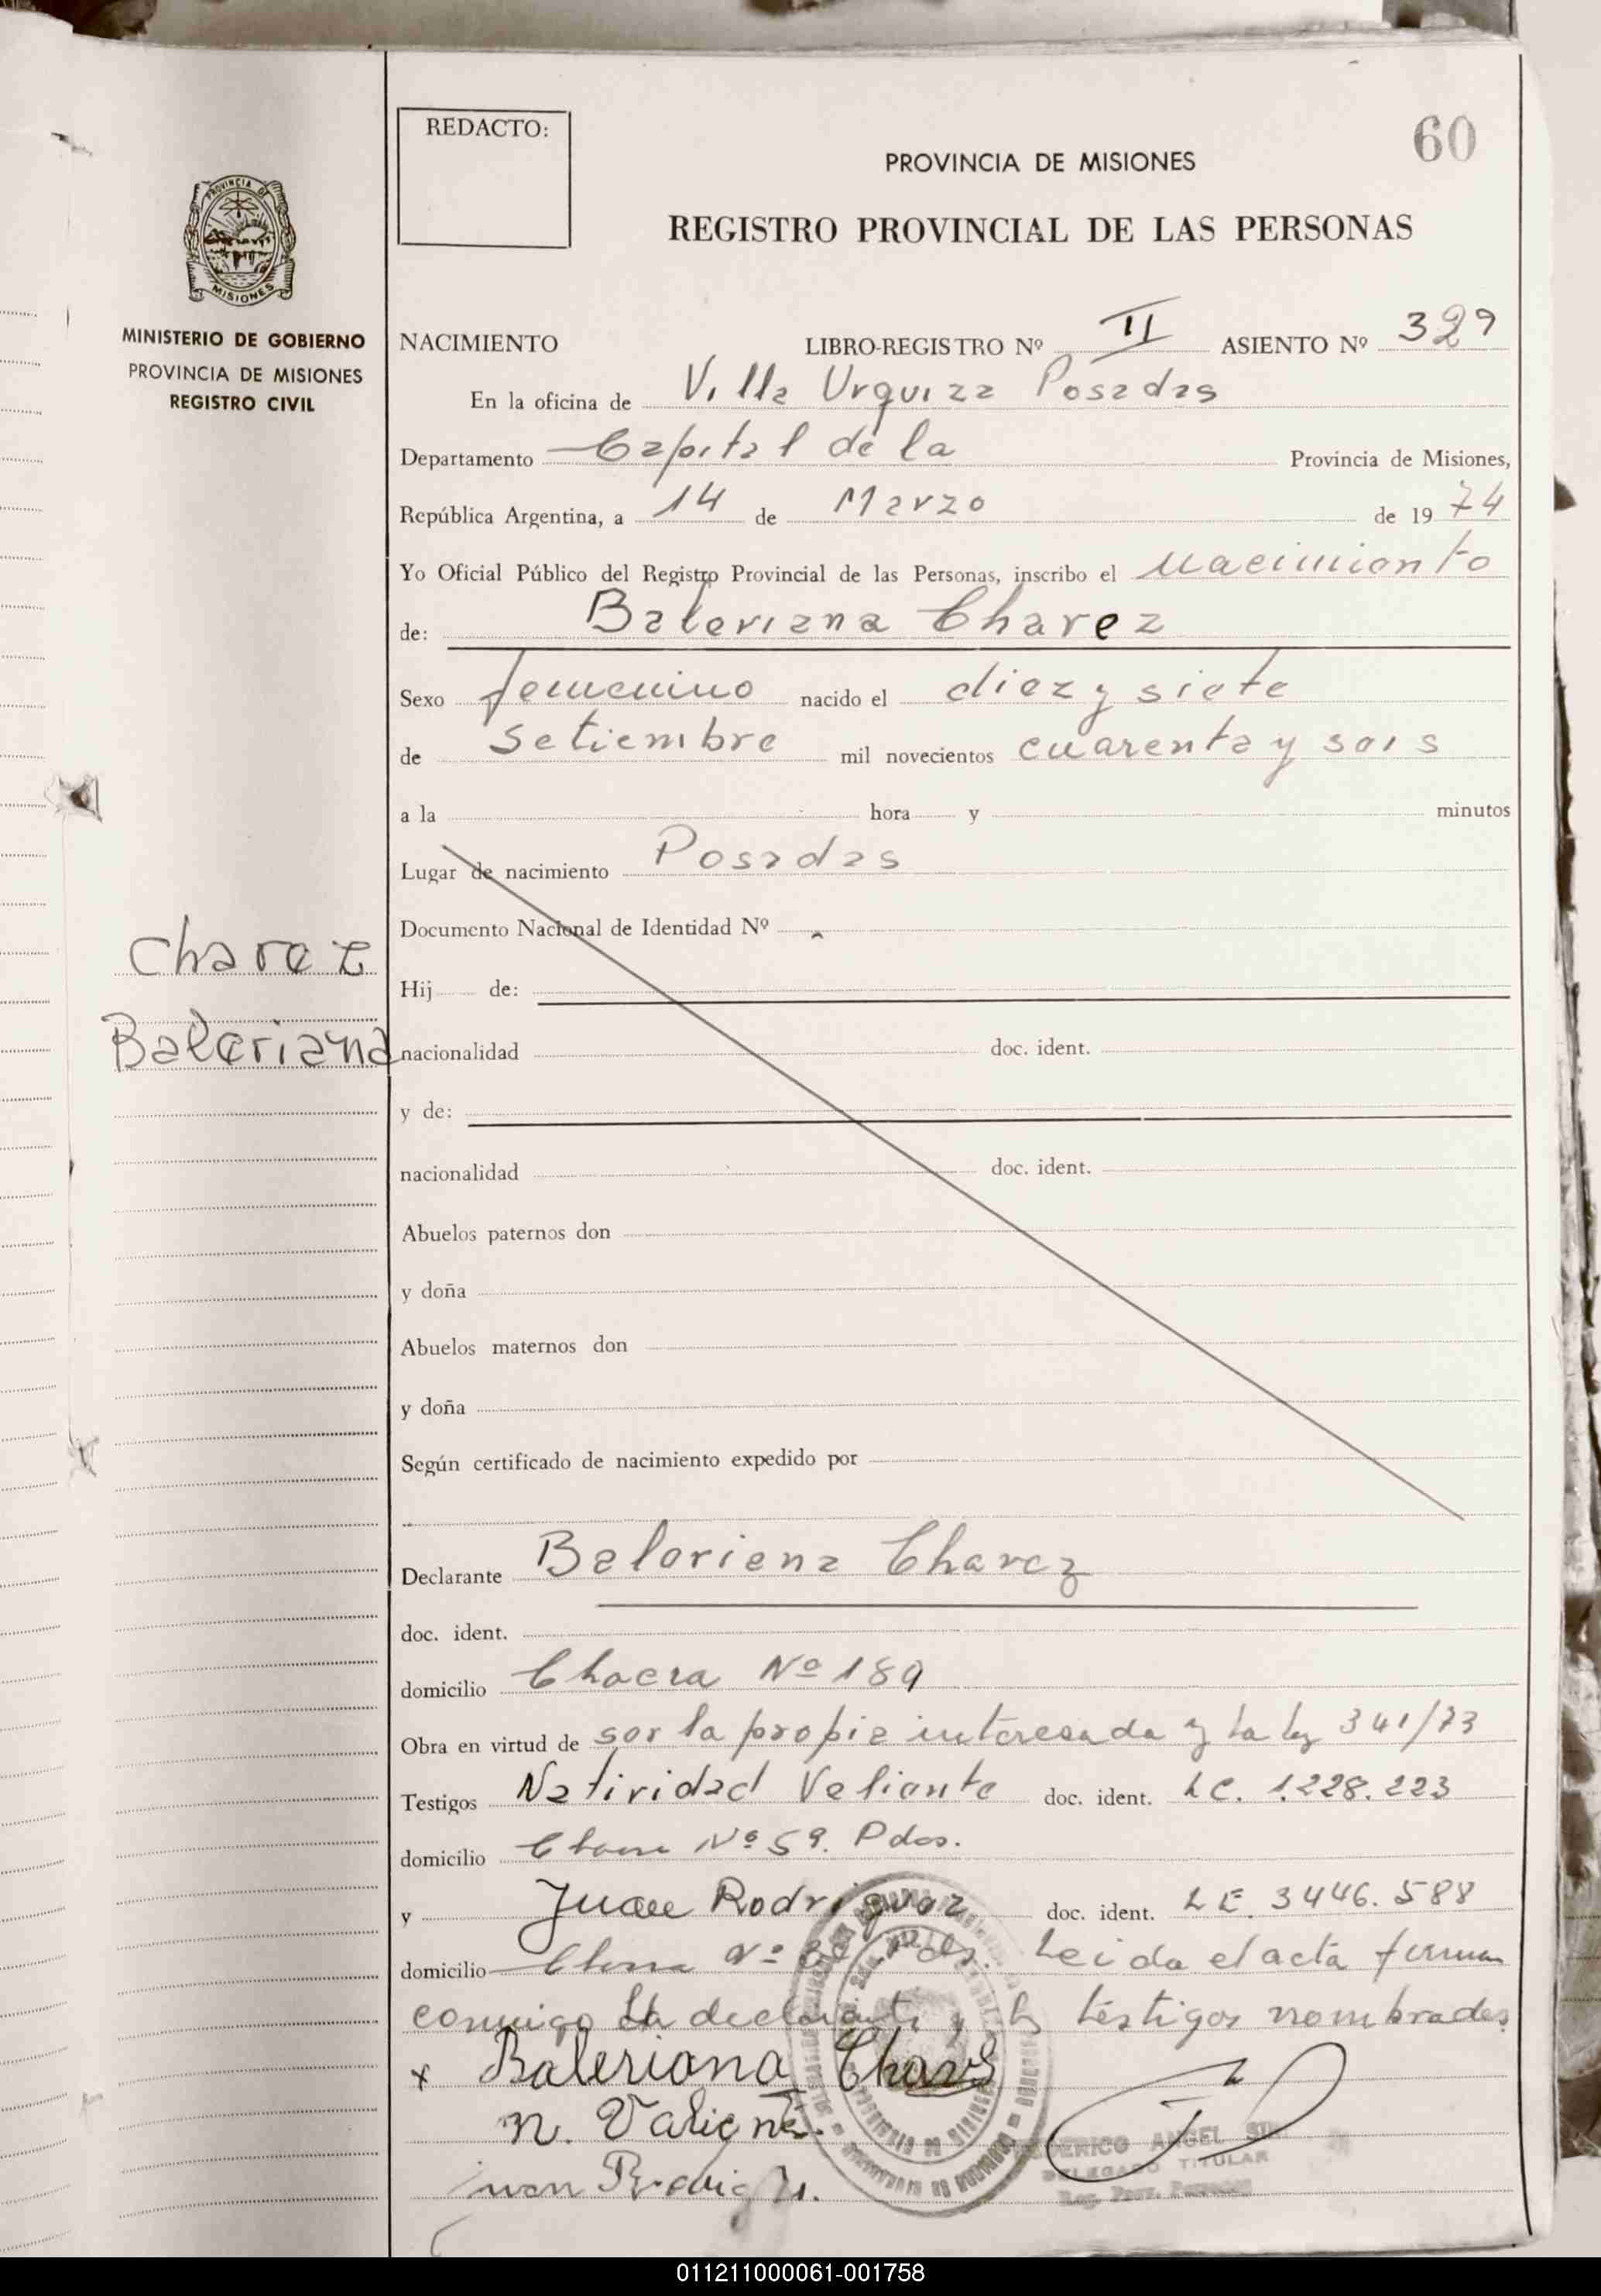 60
REDACTO:
PROVINCIA DE MISIONES
REGISTRO PROVINCIAL DE LAS PERSONAS
PROVINCIA DE
MISIONES
MINISTERIO DE GOBIERNO
PROVINCIA DE MISIONES
REGISTRO CIVIL
NACIMIENTO LIBRO-REGISTRO Nº II ASIENTO Nº 329
En la oficina de Villa Urquiza Posadas
Departamento Capital de la Provincia de Misiones,
República Argentina, a 14 de Marzo de 1974
Yo Oficial Público del Registro Provincial de las Personas, inscribo el nacimiento
de: Baleriana Chavez
Sexo femenino nacido el diez y siete
de Setiembre mil novecientos cuarenta y seis
a la hora y minutos
Lugar de nacimiento Posadas
Documento Nacional de Identidad Nº
Chavez
Hij de:
Baleriana
nacionalidad doc. ident.
y de:
nacionalidad doc. ident.
Abuelos paternos don
y doña
Abuelos maternos don
y doña
Según certificado de nacimiento expedido por
Declarante Baleriana Chavez
doc. ident.
domicilio Chacra Nº 189
Obra en virtud de ser la propia interesada y la ley 341/73
Testigos Natividad Valiente doc. ident. LC. 1.228.223
domicilio Chacra Nº 59. Pdas.
y Juan Rodriguez doc. ident. LE. 3446.588
domicilio Chacra Nº Pdas. Leida el acta firman
conmigo la declarante y los testigos nombrados
x Baleriana Chavs
n. Valiente.
juan Rodrigz.
ANGEL
DELEGADO TITULAR
011211000061-001758